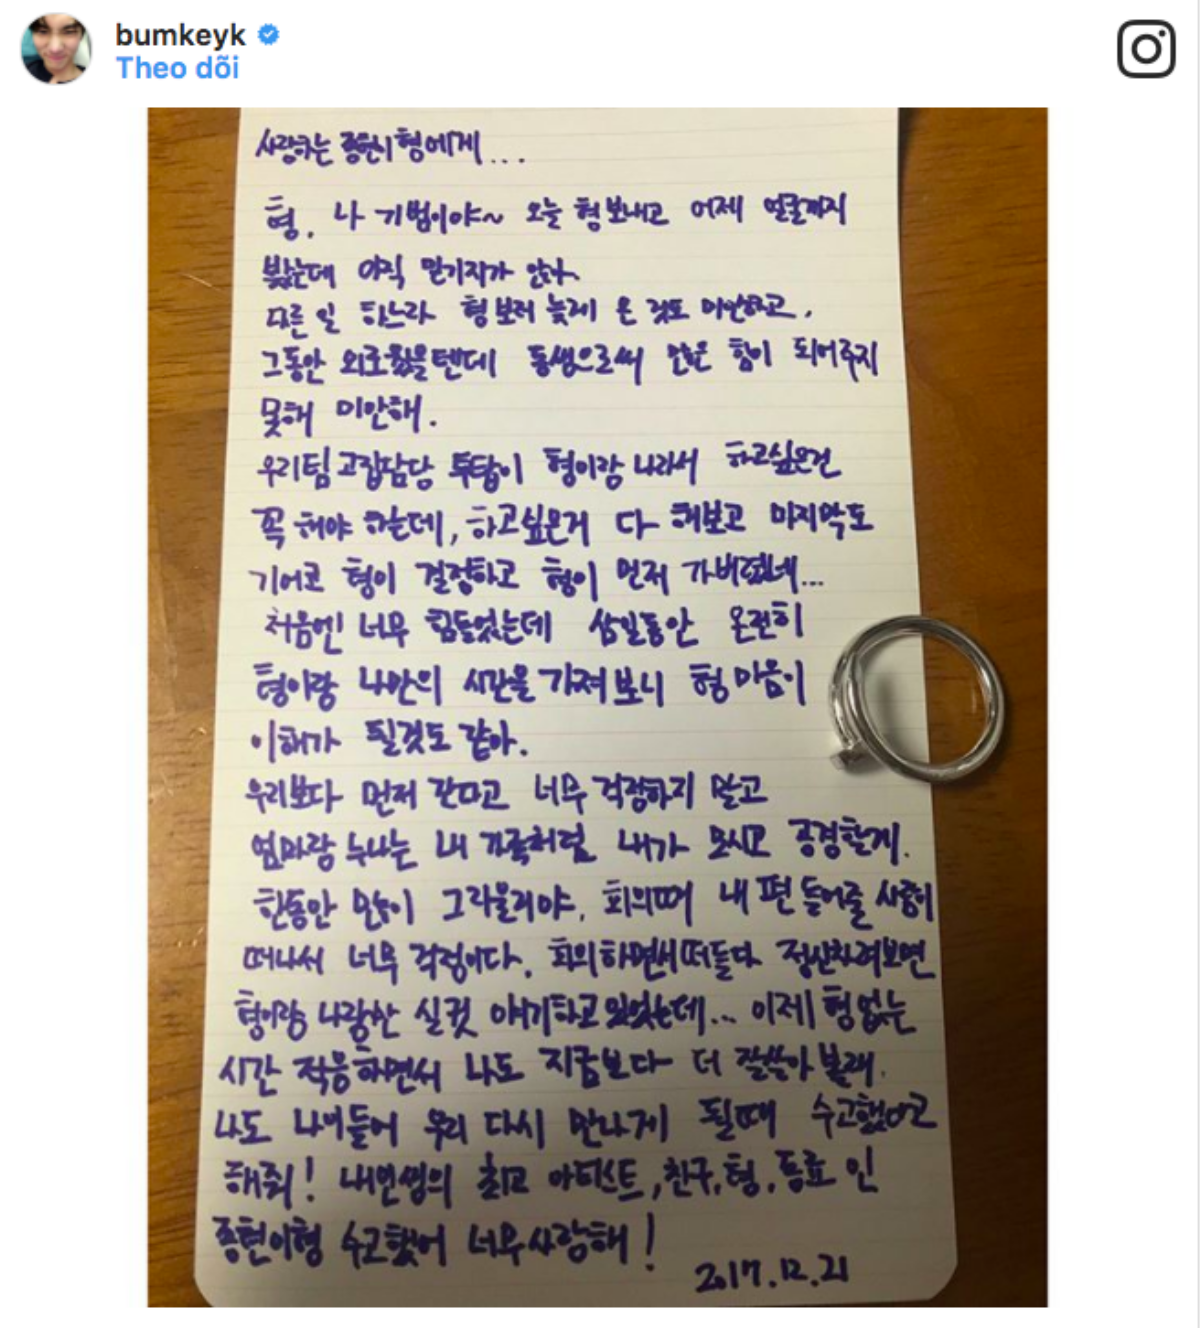 bumkeyk
Theo dõi
사랑하는 종현이형에게...
형. 나 기범이야~ 오늘 형 보내고 어제 얼굴까지
봤는데 아직 믿기지가 않아.
다른 일 하느라 형 보러 늦게 온 것도 미안하고,
그동안 외로웠을텐데 동생으로써 많은 힘이 되어주지
못해 미안해.
우리팀 고집담당 투탑이 형이랑 나라서 하고싶은건
꼭 해야 하는데, 하고싶은거 다 해보고 마지막도
기어코 형이 결정하고 형이 먼저 가버렸네...
처음엔 너무 힘들었는데 삼일동안 온전히
형이랑 나만의 시간을 가져보니 형 마음이
이해가 될것도 같아.
우리보다 먼저 간다고 너무 걱정하지 말고
엄마랑 누나는 내 가족처럼 내가 모시고 공경할게.
한동안 많이 그리울거야. 회의때 내 편 들어줄 사람이
떠나서 너무 걱정이다. 회의하면서 떠들다 정신차려보면
형이랑 나랑만 실컷 얘기하고 있었는데... 이제 형 없는
시간 적응하면서 나도 지금보다 더 잘살아 볼래.
나도 나이들어 우리 다시 만나게 될때 수고했다고
해줘! 내인생의 최고 아티스트, 친구, 형, 동료 인
종현이형 수고했어 너무 사랑해!
2017.12.21